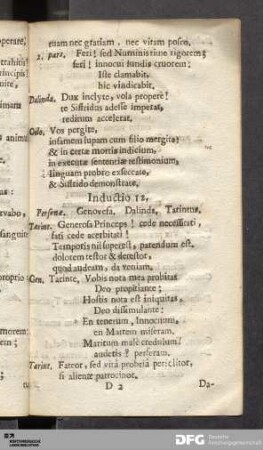 euam nec gratiam, nec vitam posco.
2. pars. Feri! sed Numinis time rigorem;
feri! innocui fundis cruorem;
Iste clamabit,
hic vindicabit.
Dalinda. Dux inclyte, vola propere!
te Sifridus adesse imperat,
reditum accelerat.
Colo. Vos pergite,
infamem lupam cum filio mergite;
& in certæ mortis indicium,
in executæ sententiæ testimonium,
linguam probro exsecrate,
& Sistrido demonstrate,
Inductio 12,
Personæ. Genovefa, Dalinda, Tarintus.
Tarint. Generosa Princeps! cede necessitati,
fati cede acerbitati!
Temporis nil superest, parendum est.
dolorem testor & detestor,
quod audeam, da veniam.
Gen. Tarinte, Vobis nota mea probitas
Deo propitiante;
Hostis nota est iniquitas,
Deo dissimulante:
En tenerum, Innocuum,
en Matrem miseram.
Maritum malè credulum!
audetis? perferam.
Tarint. Fateor, sed vitâ probriâ periclitor,
si alienæ patrocinor.
D 2 Da-
operare,
rvabo,
sanguin
proptio
morem;
rem;